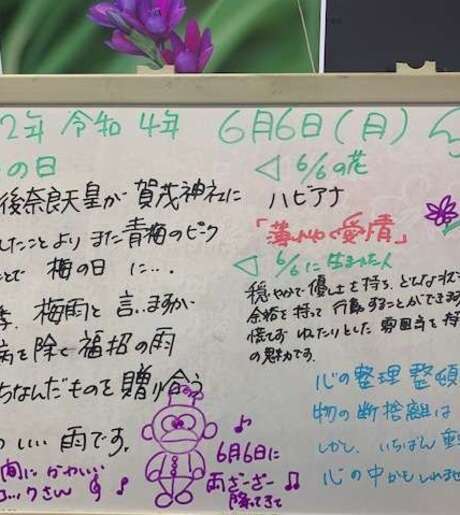 2年 令和4年 6月6日(月)
の日
後奈良天皇が賀茂神社に
したことより また青梅のピーク
ことで 梅の日に…
梅雨と言いますが
病を除く福招の雨
ちなんだものを贈り合う
いい雨です。
間に かわいい
ックさん
6月6日に
雨ざーざー
降ってきて
◁ 6/6の花
ハビアナ
「薄れゆく愛情」
◁ 6/6に生まれた人
穏やかで優しさを持ち、どんな状
余裕を持って行動することができます
慌てず ゆたりとした 雰囲気を持
の魅力です。
心の整理 整頓
物の断捨離は
しかし、いちばん
心の中かもしれませ